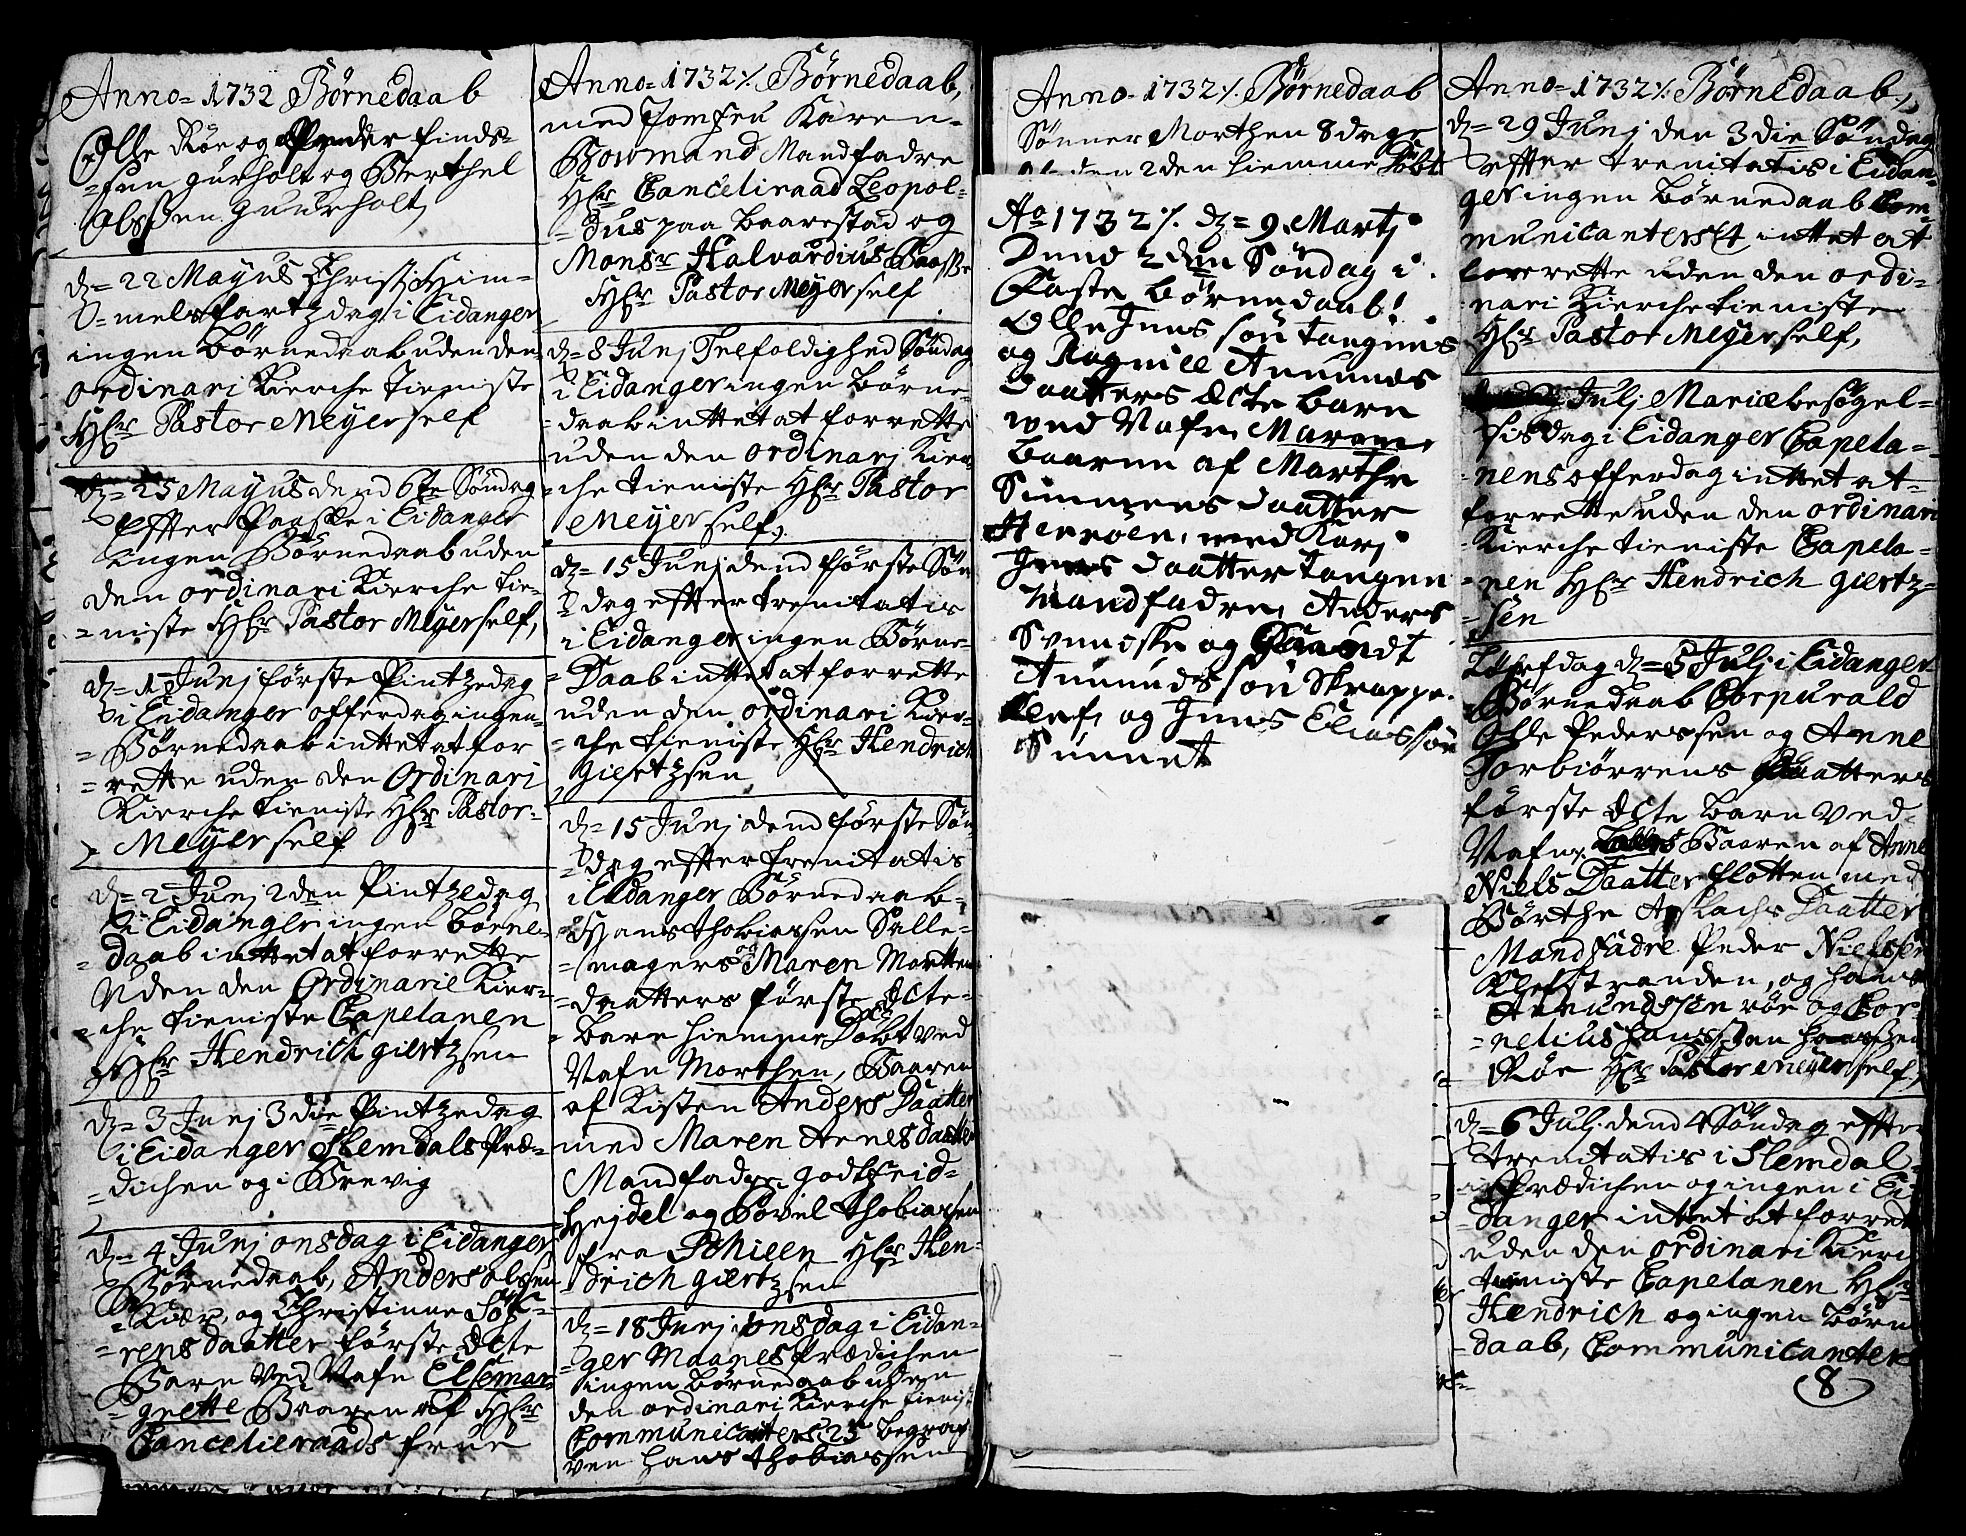 Anno = 1732 Börnedaab
Olle Röe og Peder finds-
=sen gurholt og Berthel
Olssen guurholt,
dz = 22 Mayus Christi Him-
=melsfartzdag i Eidanger
ingen Börnedaab uden den
ordinari Kierche tieniste
Hr Pastor Meyer self
dz = 25 Mayus dend 6te Söndag
effter Paaske i Eidanger
ingen Börnedaab uden
den ordinari Kierche tie-
=niste Hr Pastor Meyer self,
dz = 1 Junj förste Pintzedag
i Eidanger offerdag ingen
= Börnedaab inttet at for
= rette uden den Ordinari
Kierche tieniste Hr Pastor
Meyer self
dz = 2 Junj 2den Pintzedag
i Eidanger ingen börne-
= daab inttet at forrette
Uden den Ordinarie Kier-
= che tieniste Capelanen
Hr Hendrich giertzsen
dz = 3 Junj 3die Pintzedag
i Eidanger Slemdals Præ-
= dichen og i Brevig
dz = 4 Junj onsdag i Eidanger
Börnedaab, Anders olssen
= Kiær, og Christinne Söf-
= rens daatter förste Ecte
Barn Ved Nafn Elsemar-
= grette Baaren af Hr
Cancelieraads frue
Anno = 1732 ⁒ Börnedaab,
med Jomfru Karen
Bowmand Mandfadre
Hr Canceliraad Leopol-
= dus paa Baarestad og
Monsr Halvardius Baaske
Hr Pastor Meyer self
dz = 8 Junj Trefoldighed Söndag
i Eidanger ingen börne
= daab inttet at forrette
uden den ordinarj Kier
= che tieniste Hr Pastor
Meyer self,
dz = 15 Junj dend förste Sön
= dag effter trenitatis
i Eidanger ingen Börne
= Daab inttet at forrette
uden den ordinari Kier-
= che tieniste Hr Hendrich
Giertzsen
dz = 15 Junj dend förste Sön
= dag effter trenitatis
i Eidanger Börnedaab
Hans thobiassen Salle-
= magers og Maren Morttens
= daatters förste Ecte
= barn hiemme Döbt ved
Nafn Morthen, Baaren
af Kisten Anders Daatter
med Maren Arnes daatter
Mandfadre godtfreid
Hejdel og Povel thobiassen
fra Schieen Hr Hen-
drich giertzsen
dz = 18 Junj onsdag i Eidan-
= ger Maanes Prædichen
ingen börnedaab uden
den ordinari Kierche tienist
Communicanters 25 begraf-
ven hans thobiassen
Anno = 1732 ⁒ Börnedaab
Sönner Morthen 8 dage
den 2den hiemme Döbt
Ao 1732 ⁒ dz = 9 Martj
Dend 2den Söndag i
Faste Börnedaab!
Olle Jens sön tangens
og Ragnill Amunds
daatters Ecte barn
wed Nafn Maren
baaren af Marthe
Simmens daatter
Herröen, med Karj
Jens daatter tangen
Mandfadren, Anders
Svendske og Amundt
Amunds sön Skrappe-
klef, og Jens Elias sön
Sunnet
Anno = 1732 ⁒ Börnedaab,
dz = 29 Junj den 3die Söndag
effter trenitatis i Eidan-
ger ingen börnedaab Com-
municanters inttet at
forrette uden den ordi-
nari Kierche tieniste
Hr Pastor Meyer self,
Julj Mariæ besögel-
= sis dag i Eidanger Capela-
= nens offerdag inttet at
forrette uden den ordinari
Kierche tieniste Capela-
= nen Hr Hendrich giertz-
= sen
dag dz = 5 Julj i Eidanger
= Börnedaab Corpurald
Olle Pederssen og Anne
Torbiörrens Daatters
förste Ecte barn ved
Nafn Baaren af Anne
Niels Daatter flotten med
Börthe Aslachs Daatter
Mandfadre Peder Nielssen
Klefstranden, og hans
Amundssen röe og Cor-
= nelius hanssen
Röe Hr Pastor Meyer self,
dz = 6 Julj dend 4 Söndag effter
trenitatis i Slemdal
Prædichen og ingen i Ei
= danger inttet at forrette
uden den ordinari Kierche
tieniste Capelanen Hr
Hendrich og ingen börne
= daab, Communicanter
8